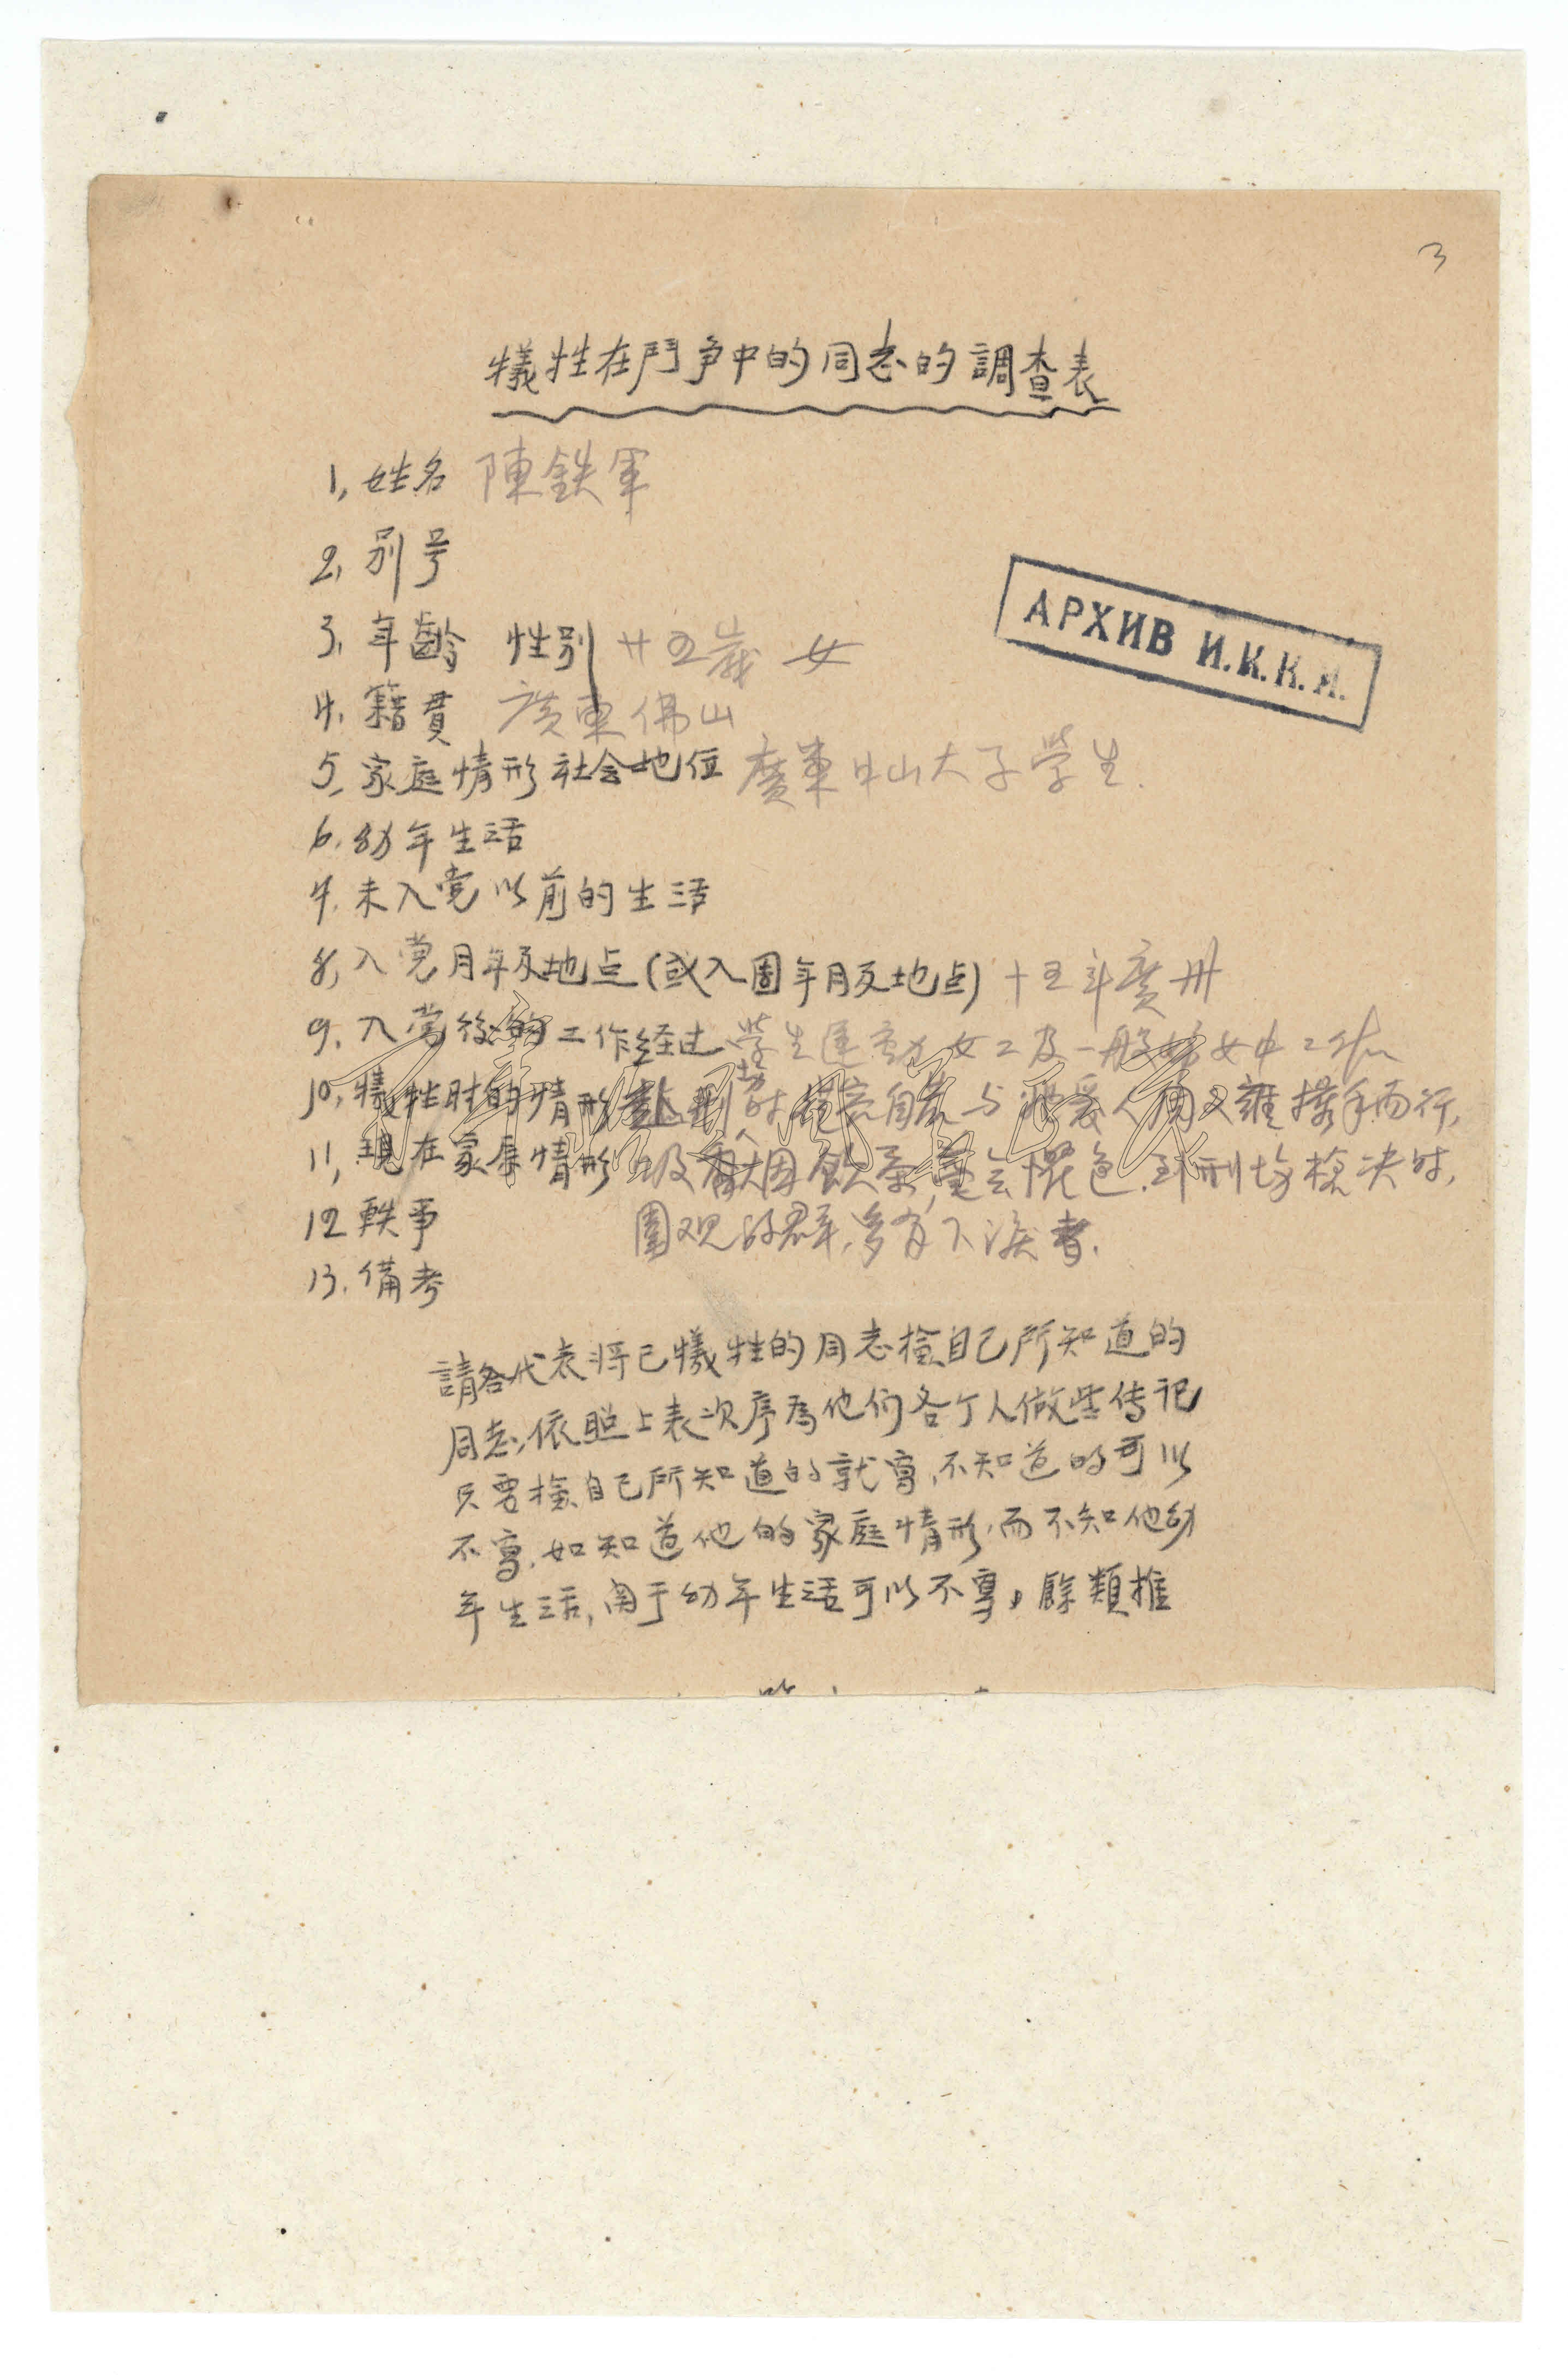 3
犧牲在鬥争中的同志的調查表
1, 姓名 陳鉄軍
2, 别号
3, 年齡 性别 廿五歲 女
4. 籍貫 廣東佛山
5. 家庭情形社会地位 廣東中山大子學生.
АРХИВ И.К.К.И.
6. 幼年生活
7. 未入党以前的生活
8, 入党月年及地点(或入团年月及地点) 十五年廣州
9. 入党後的工作经过 學生運動女工及一般婦女中工作
10, 犧牲时的情形 赴刑場时 自若与 愛人周文雍携手而行,
11, 現在家庭情形 吸香烟飲茶, 毫無惧色. 到刑場槍决时,
12 軼事 圍观的群, 多有下淚者.
13. 備考
請各代表将已犧牲的同志檢自己所知道的
同志, 依照上表次序為他们各个人做些传记
只要檢自己所知道的就寫, 不知道的可以
不寫. 如知道他的家庭情形, 而不知他幼
年生活, 関于幼年生活可以不寫, 餘類推